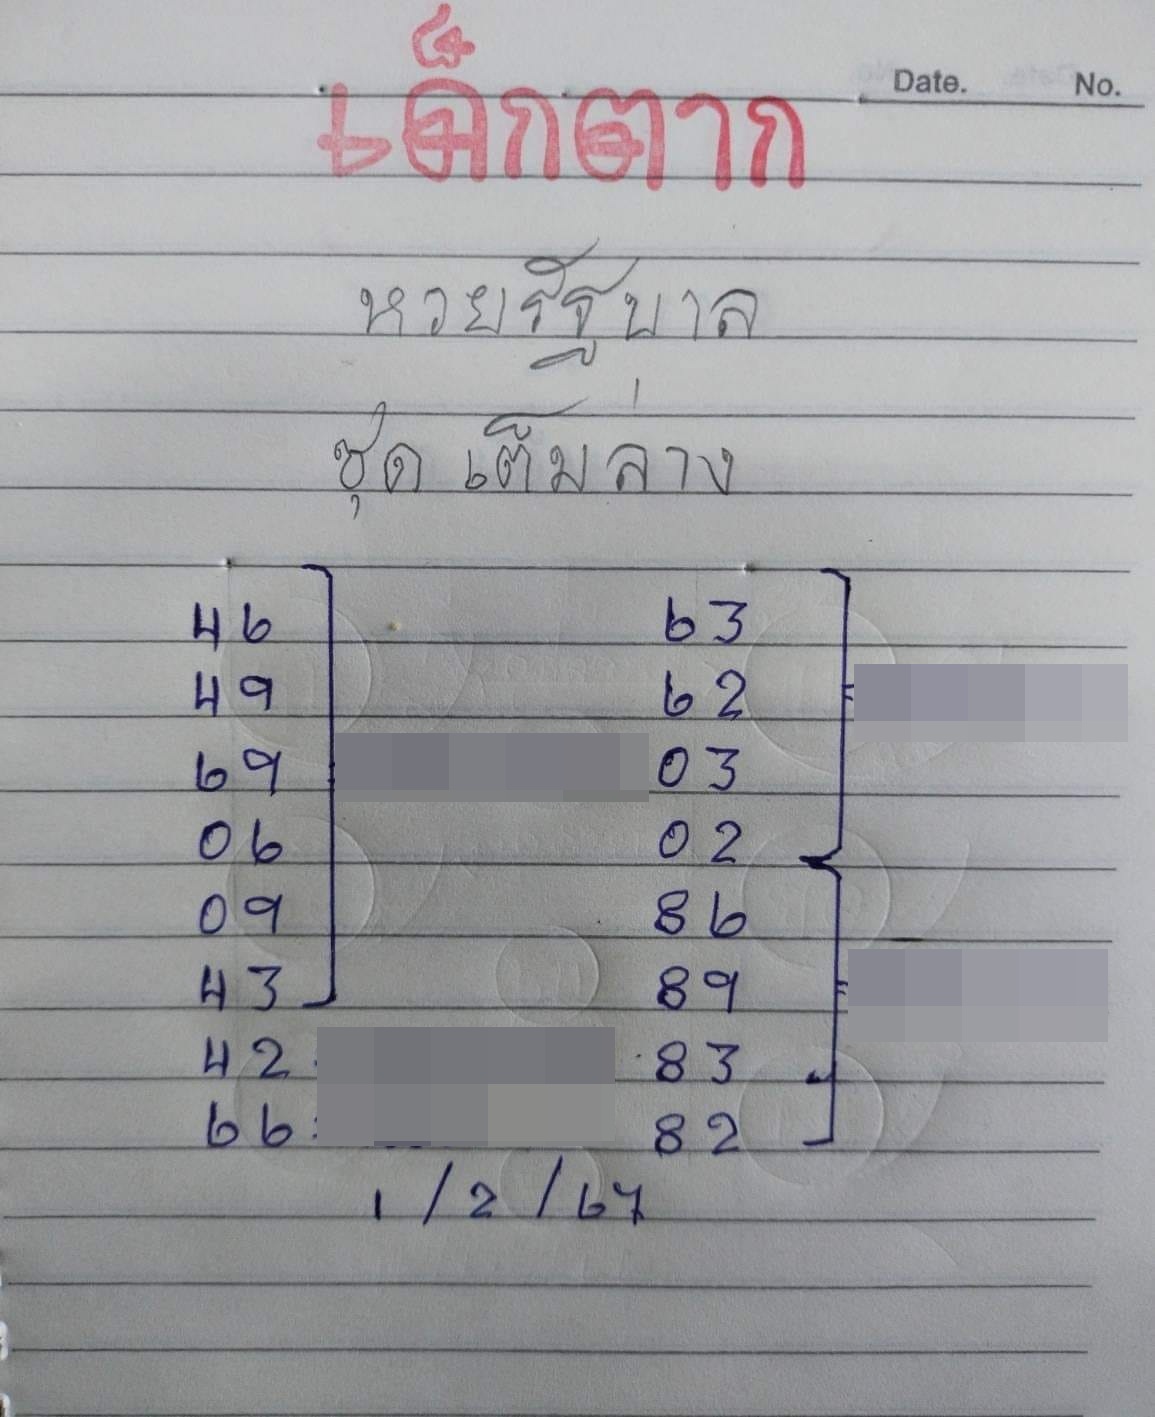 Date. No.
เด็กตาก
หวยรัฐบาล
ชุดเต็มล่าง
46 63
49 62
69 03
06 02
09 86
43 89
42 83
66 82
1/2/67